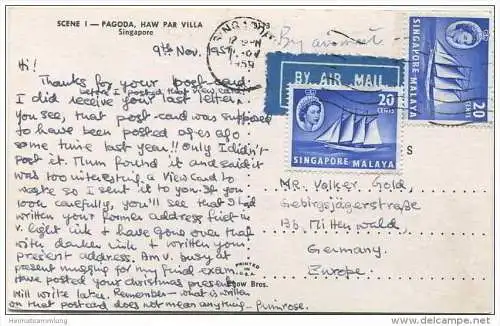 SCENE I — PAGODA, HAW PAR VILLA
Singapore
9th Nov. 1959.
Hi!
Thanks for your post-card.
before I posted that view card
I did receive your last letter.
You see, that post-card was supposed
to have been posted ages ago
some time last year!! Only I didn't
post it. Mum found it and said it
was too interesting a view card to
waste so I sent it to you. If you
look carefully, you'll see that I had
written your former address first in
v. light ink & have gone over that
with darker ink & written your
present address. Am v. busy at
present mugging for my final exam.
Have posted your christmas present
will write later. Remember – what is written
on that postcard does not mean anything – Primrose.
PRINTED
IN
U.S.A.
Bros.
SINGAPORE
By air mail
BY AIR MAIL
20
CENTS
SINGAPORE MALAYA
20
CENTS
SINGAPORE MALAYA
S
Mr. Volker Gold,
Gebirgsjägerstraße
13b, Mittenwald,
Germany
Europe.
Heimatsammlung